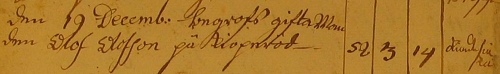 den 19 Decemb: begrofs gifta Man
den Olof Olofson på Kioperöd 52 3 14